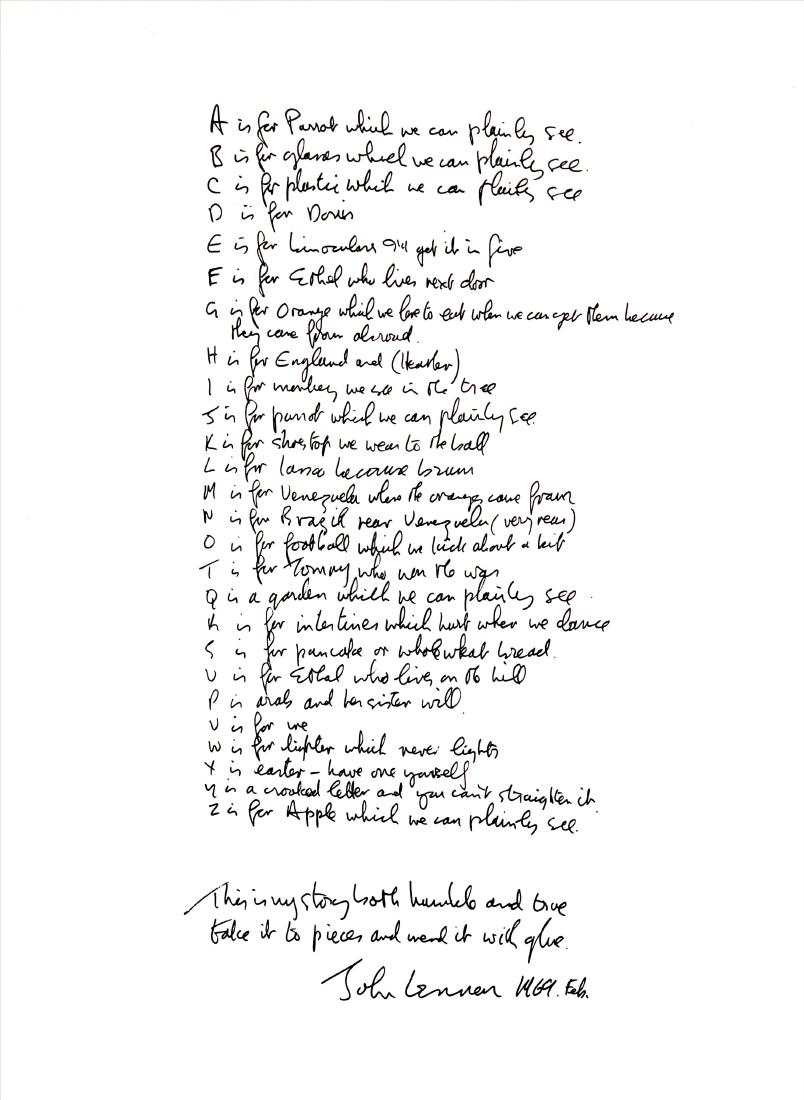 A is for Parrot which we can plainly see.
B is for glasses which we can plainly see.
C is for plastic which we can plainly see
D is for Doris
E is for binoculars I'll get it in five
F is for Ethel who lives next door
G is for Orange which we love to eat when we can get them because
they come from abroad.
H is for England and (Heather)
I is for monkey we see in the tree
J is for parrot which we can plainly see.
K is for shoetop we wear to the ball
L is for lassa because brum
M is for Venezuela where the oranges come from
N is for Brazil near Venezuela (very near)
O is for football which we kick about a bit
T is for Tommy who won the war
Q is a garden which we can plainly see.
R is for intestines which hurt when we dance
S is for pancake or wholewheat bread.
U is for Ethel who lives on the hill
P is arab and her sister will.
V is for me
W is for lighter which never lights
X is easter - have one yourself
Y is a crooked letter and you can't straighten it.
Z is for Apple which we can plainly see.
This is my story both humble and true
take it to pieces and mend it with glue.
John Lennon 1969. Feb.